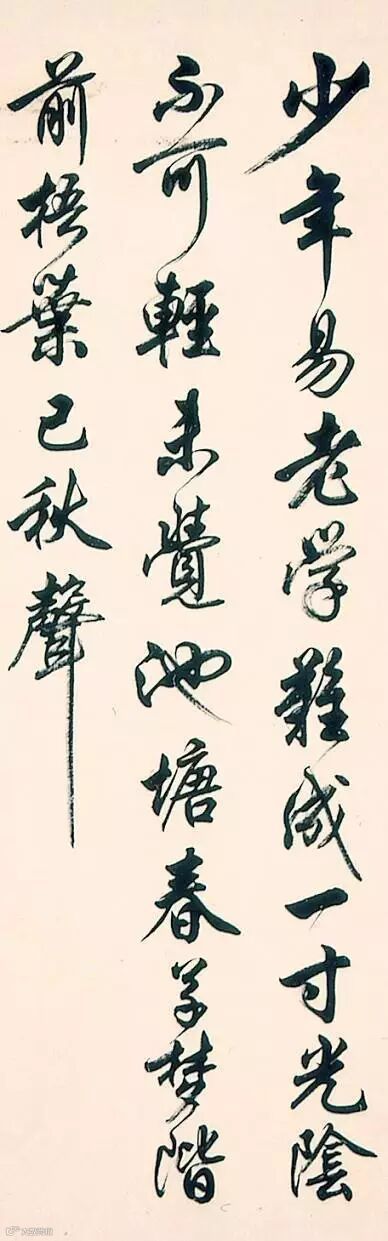 少年易老学難成一寸光陰
不可輕未覺池塘春草梦階
前梧葉已秋聲